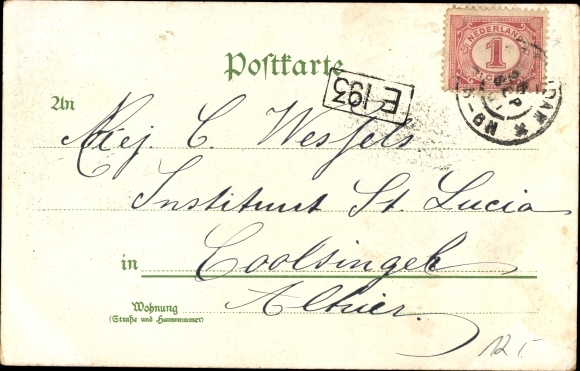 NEDERLAND
1
Postkarte
E 193
An
Mej C. Wessels
Instituut St. Lucia
in
Coolsingel
Alhier.
Wohnung
(Straße und Hausnummer)